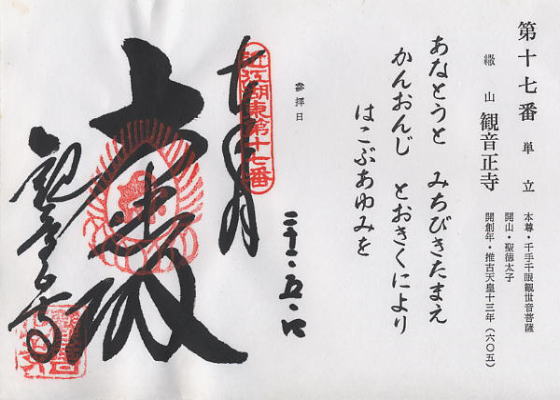 第十七番 単立
繖山 観音正寺
本尊・千手千眼観世音菩薩
開山・聖徳太子
開創年・推古天皇十三年(六〇五)
あなとうと みちびきたまえ
かんおんじ とおきくにより
はこぶあゆみを
參拝日
近江湖東第十七番
大悲殿
観音正寺